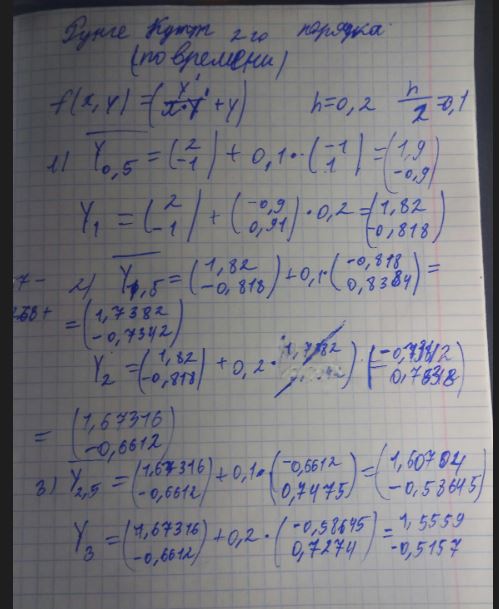 Рунге Кутт 2го порядка
(по времени)
f(x,y) = (y' / x·y' + y) h=0,2 h/2=0,1
1) Y0,5 = (2 / -1) + 0,1·(-1 / 1) = (1,9 / -0,9)
Y1 = (2 / -1) + (-0,9 / 0,91)·0,2 = (1,82 / -0,818)
2) Y1,5 = (1,82 / -0,818) + 0,1·(-0,818 / 0,8384) =
= (1,7382 / -0,7342)
Y2 = (1,82 / -0,818) + 0,2·
= (1,67316 / -0,6612)
3) Y2,5 = (1,67316 / -0,6612) + 0,1·(-0,6612 / 0,7475) = (1,60704 / -0,58645)
Y3 = (1,67316 / -0,6612) + 0,2·(-0,58645 / 0,7274) = 1,5559 / -0,5157